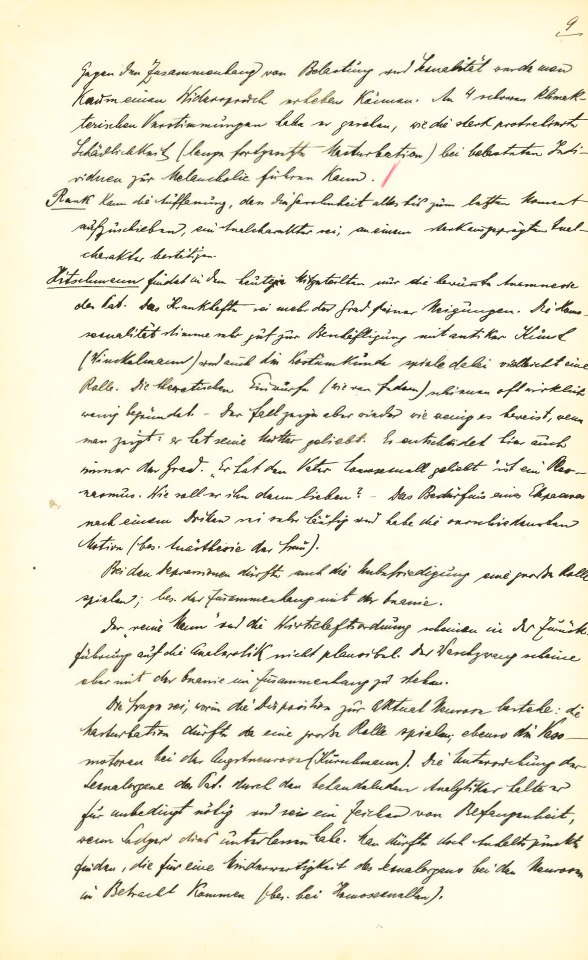 9
Gegen den Zusammenhang von Belastung und Sexualität werde man
kaum einen Widerspruch erheben können. An 4 schweren klimak-
terischen Verstimmungen habe er gesehen, wie die stark protrahierte
Schädlichkeit (lange fortgesetzte Masturbation) bei belasteten Indi-
viduen zur Melancholie führen kann.
Rank kann die Auffassung, den Unsinn alles bis zum letzten Moment
aufzuschieben, ein Analcharakter sei, an einem stark ausgeprägten Anal-
charakter bestätigen.
Hitschmann findet in den heutigen Mitgeteilten nur die bewusste Anamnese
des Pat. Das Krankhafte sei mehr der Grad seiner Neigungen. Die Homo-
sexualität stimme sehr gut zur Beschäftigung mit antiker Kunst
(Winckelmann) und auch die Kostümkunde spiele dabei vielleicht eine
Rolle. Die theoretischen Einwürfe (wie von Federn) schienen oft wirklich
wenig begründet – Der Fall zeige aber wieder wie wenig es beweist, wenn
man zeigt: er hat seine Mutter geliebt. Es entscheidet hier auch
immer der Grad. „Er hat den Vater homosexuell geliebt" ist ein Pleo-
nasmus. Wie soll er ihn denn lieben? – Das Bedürfnis eines Ehepaares
nach einem Dritten sei sehr häufig und habe die verschiedensten
Motive (bes. Anästhesie der Frau).
Bei den Depressionen dürfte auch die Unbefriedigung eine große Rolle
spielen; bes. der Zusammenhang mit der Onanie.
Der „reine Mann" und die Wirtschaftsordnung scheinen in der Zurück-
führung auf die Analerotik nicht plausibel. Der Waschzwang scheine
eher mit der Onanie im Zusammenhang zu stehen.
Die Frage sei, worin die Disposition zur Aktual Neurose bestehe: die
Masturbation dürfte da eine große Rolle spielen; ebenso die Vaso-
motoren bei der Angstneurose. Die Untersuchung der
Sexualorgane des Pat. durch den behandelnden Analytiker halte er
für unbedingt nötig und sei ein Zeichen von Befangenheit,
wenn Sadger dies unterlassen habe. Man dürfte doch Anhaltspunkte
finden, die für eine Minderwertigkeit des Sexualorgans bei den Neurosen
in Betracht kommen (bes. bei Homosexuellen).